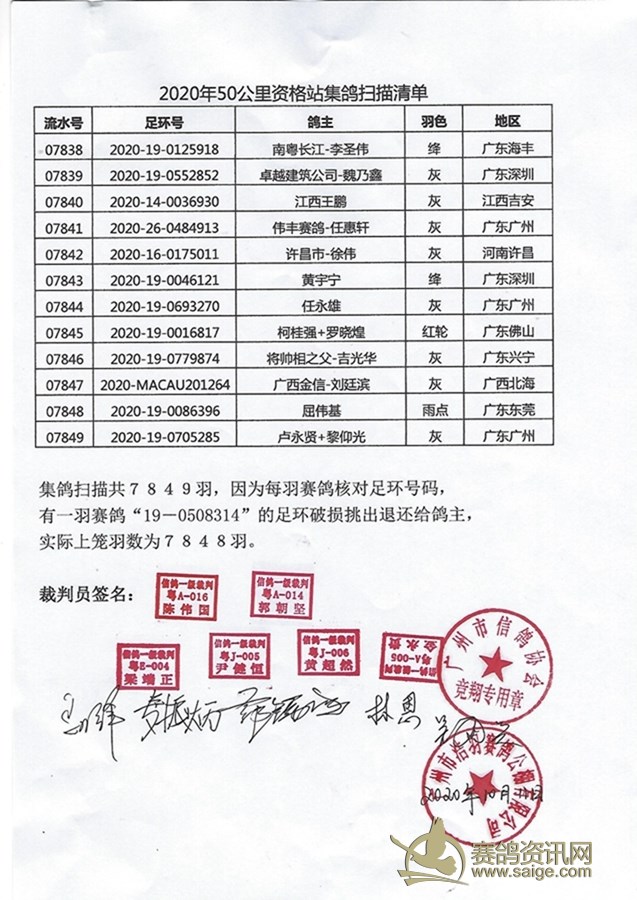 2020年50公里资格站集鸽扫描清单
流水号 足环号 鸽主 羽色 地区
07838 2020-19-0125918 南粤长江-李圣伟 绛 广东海丰
07839 2020-19-0552852 卓越建筑公司-魏乃鑫 灰 广东深圳
07840 2020-14-0036930 江西王鹏 灰 江西吉安
07841 2020-26-0484913 伟丰赛鸽-任惠轩 灰 广东广州
07842 2020-16-0175011 许昌市-徐伟 灰 河南许昌
07843 2020-19-0046121 黄宇宁 绛 广东深圳
07844 2020-19-0693270 任永雄 灰 广东广州
07845 2020-19-0016817 柯桂强+罗晓煌 红轮 广东佛山
07846 2020-19-0779874 将帅相之父-吉光华 灰 广东兴宁
07847 2020-MACAU201264 广西金信-刘廷滨 灰 广西北海
07848 2020-19-0086396 屈伟基 雨点 广东东莞
07849 2020-19-0705285 卢永贤+黎仰光 灰 广东广州
集鸽扫描共７８４９羽，因为每羽赛鸽核对足环号码，
有一羽赛鸽“19－0508314”的足环破损挑出退还给鸽主，
实际上笼羽数为７８４８羽。
裁判员签名：
信鸽一级裁判
粤A-016
陈伟国
信鸽一级裁判
粤A-014
郭朝坚
信鸽一级裁判
粤E-004
梁端正
信鸽一级裁判
粤J-005
尹健恒
信鸽一级裁判
粤J-006
黄超然
信鸽一级裁判
粤A-005
广州市信鸽协会
竞翔专用章
林恩
2020年10月
赛鸽资讯网
www.saige.com